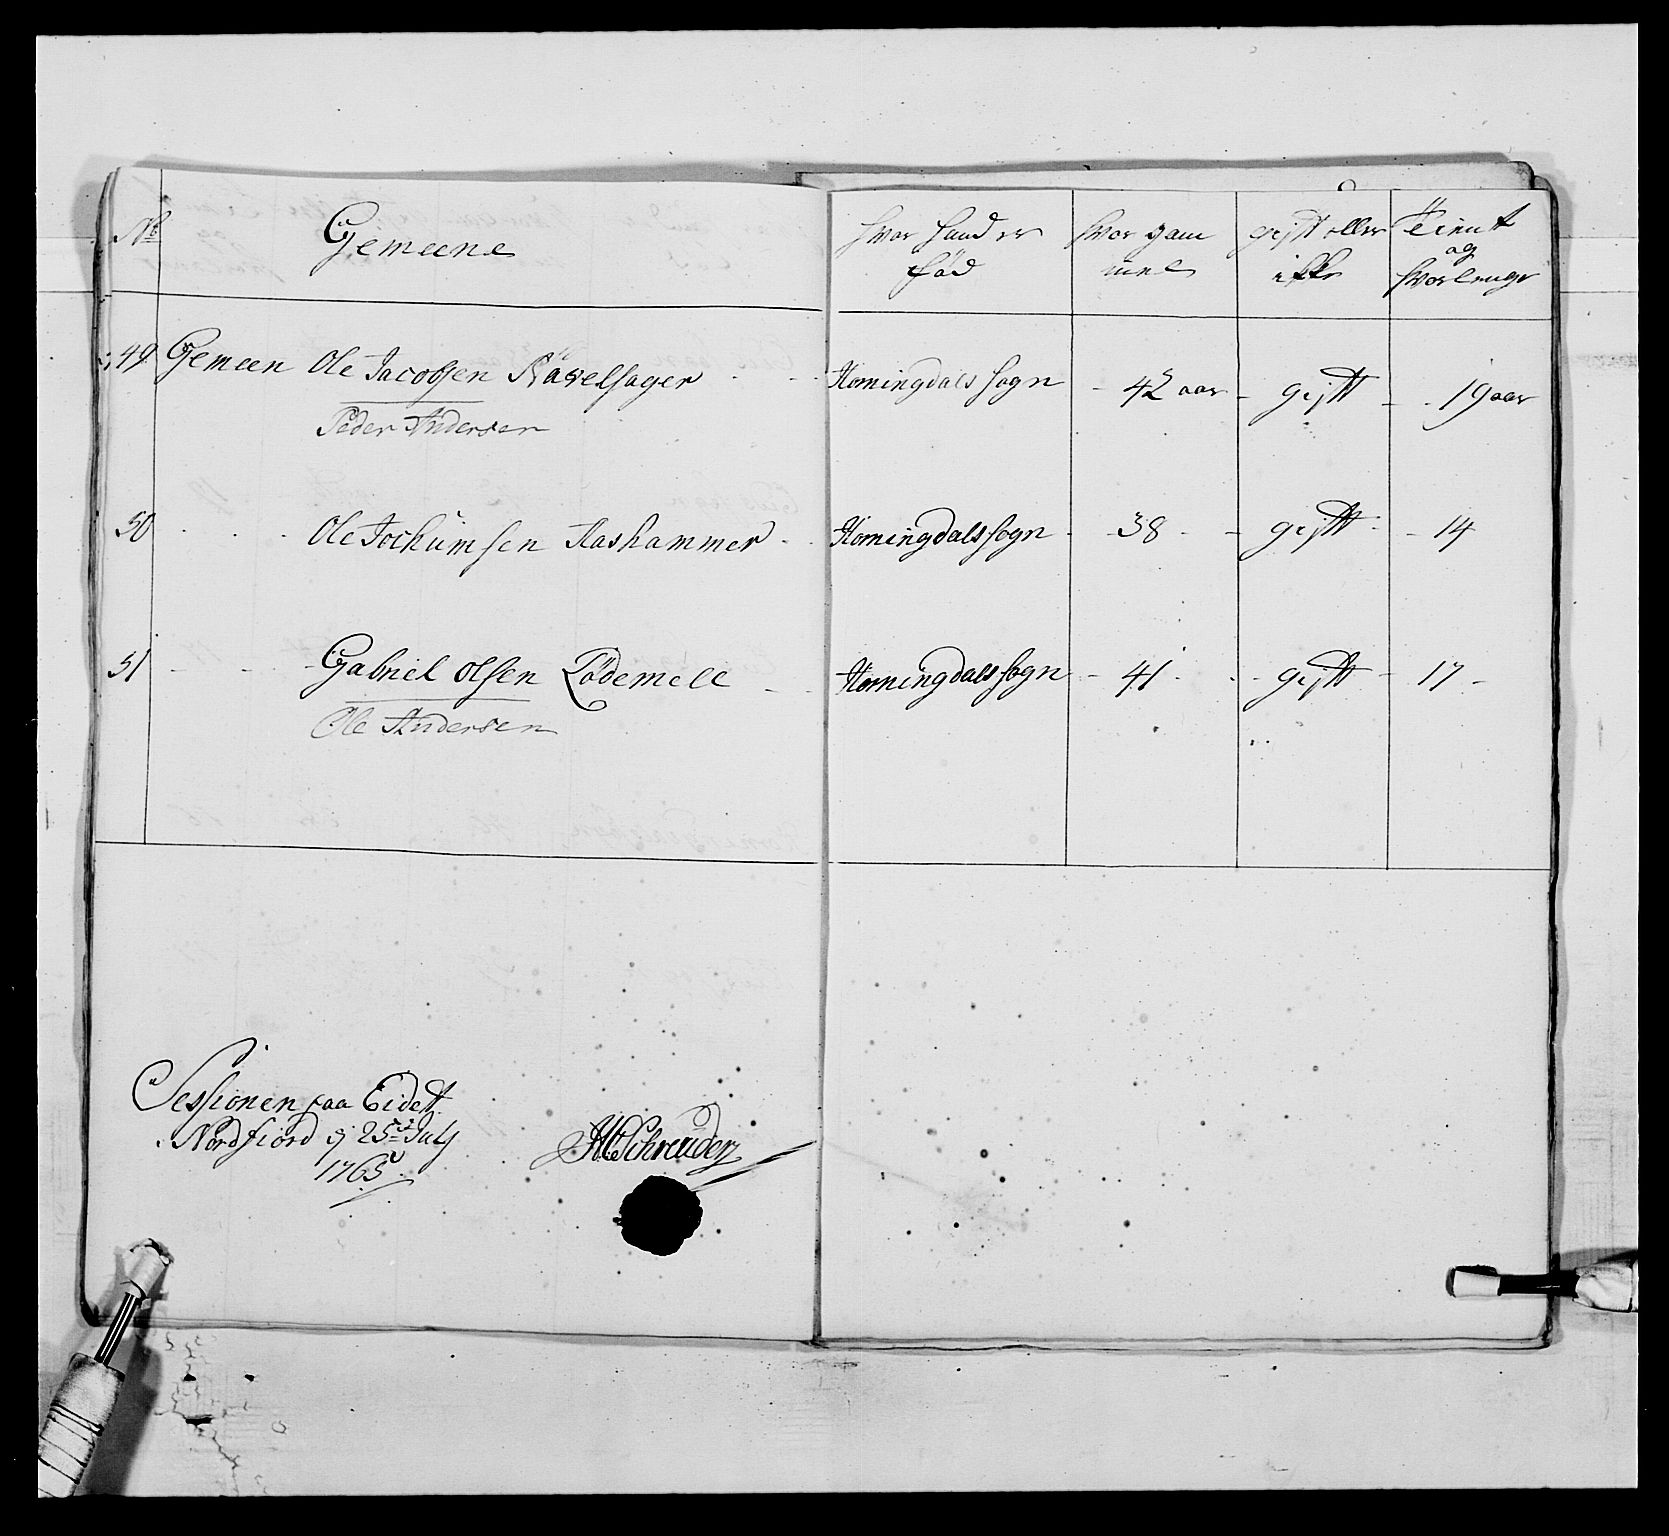 No Gemeene hvor hand er hvor gam gift eller Tient
og
fød mel ikke hvorlenge
49 Gemeen Ole Jacobsen Navelsager Horningdals sogn 42 aar gift 19 aar
Peder Andersen
50 Ole Jochumsen Aashammer Horningdals sogn 38 gift 14
51 Gabriel Olsen Lødemell Horningdals sogn 41 gift 17
Ole Andersen
Sessionen paa Eidet
Nordfiord d 25de July
1765 Schreuder